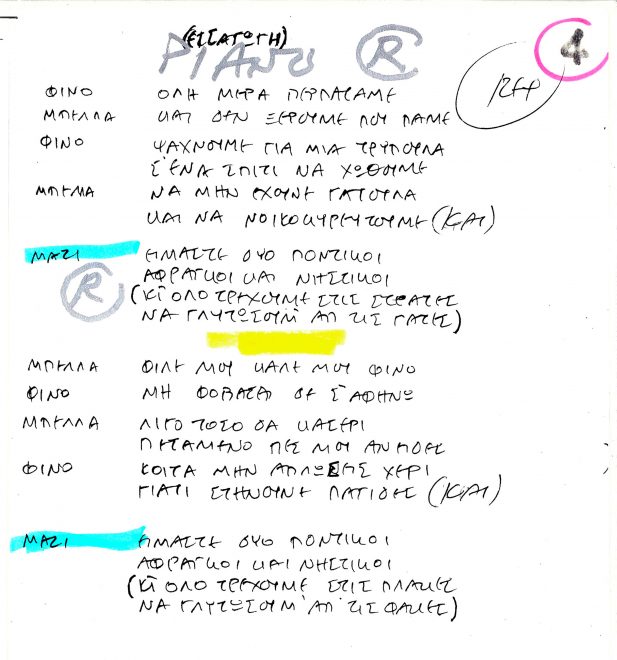 (ΕΙΣΑΓΩΓΗ)
PIANO R 4
ΦΙΝΟ ΟΛΗ ΜΕΡΑ ΠΕΡΠΑΤΑΜΕ
ΜΠΕΛΛΑ ΚΑΙ ΔΕΝ ΞΕΡΟΥΜΕ ΠΟΥ ΠΑΜΕ
ΦΙΝΟ ΨΑΧΝΟΥΜΕ ΓΙΑ ΜΙΑ ΤΡΥΠΟΥΛΑ
Σ' ΕΝΑ ΣΠΙΤΙ ΝΑ ΧΩΘΟΥΜΕ
ΜΠΕΛΛΑ ΝΑ ΜΗΝ ΕΧΟΥΝΕ ΓΑΤΟΥΛΑ
ΚΑΙ ΝΑ ΝΟΙΚΟΚΥΡΕΥΤΟΥΜΕ (ΚΑΙ)
ΜΑΖΙ ΕΙΜΑΣΤΕ ΔΥΟ ΠΟΝΤΙΚΟΙ
ΑΦΡΑΓΚΟΙ ΚΑΙ ΝΗΣΤΙΚΟΙ
R (ΚΙ ΟΛΟ ΤΡΕΧΟΥΜΕ ΣΤΙΣ ΣΤΡΑΤΕΣ
ΝΑ ΓΛΥΤΩΣΟΥΜ' ΑΠ' ΤΙΣ ΓΑΤΕΣ)
ΜΠΕΛΛΑ ΦΙΛΕ ΜΟΥ ΚΑΛΕ ΜΟΥ ΦΙΝΟ
ΦΙΝΟ ΜΗ ΦΟΒΑΣΑΙ ΔΕ Σ' ΑΦΗΝΩ
ΜΠΕΛΛΑ ΛΙΓΟ ΤΟΣΟ ΔΑ ΚΑΣΕΡΙ
ΠΕΤΑΜΕΝΟ ΠΕΣ ΜΟΥ ΑΝ ΕΙΔΕΣ
ΦΙΝΟ ΚΟΙΤΑ ΜΗΝ ΑΠΛΩΣΕΙΣ ΧΕΡΙ
ΓΙΑΤΙ ΣΤΗΝΟΥΝΕ ΠΑΓΙΔΕΣ (ΚΑΙ)
ΜΑΖΙ ΕΙΜΑΣΤΕ ΔΥΟ ΠΟΝΤΙΚΟΙ
ΑΦΡΑΓΚΟΙ ΚΑΙ ΝΗΣΤΙΚΟΙ
(ΚΙ ΟΛΟ ΤΡΕΧΟΥΜΕ ΣΤΙΣ ΠΛΑΚΕΣ
ΝΑ ΓΛΥΤΩΣΟΥΜ' ΑΠ' ΤΙΣ ΦΑΚΕΣ)